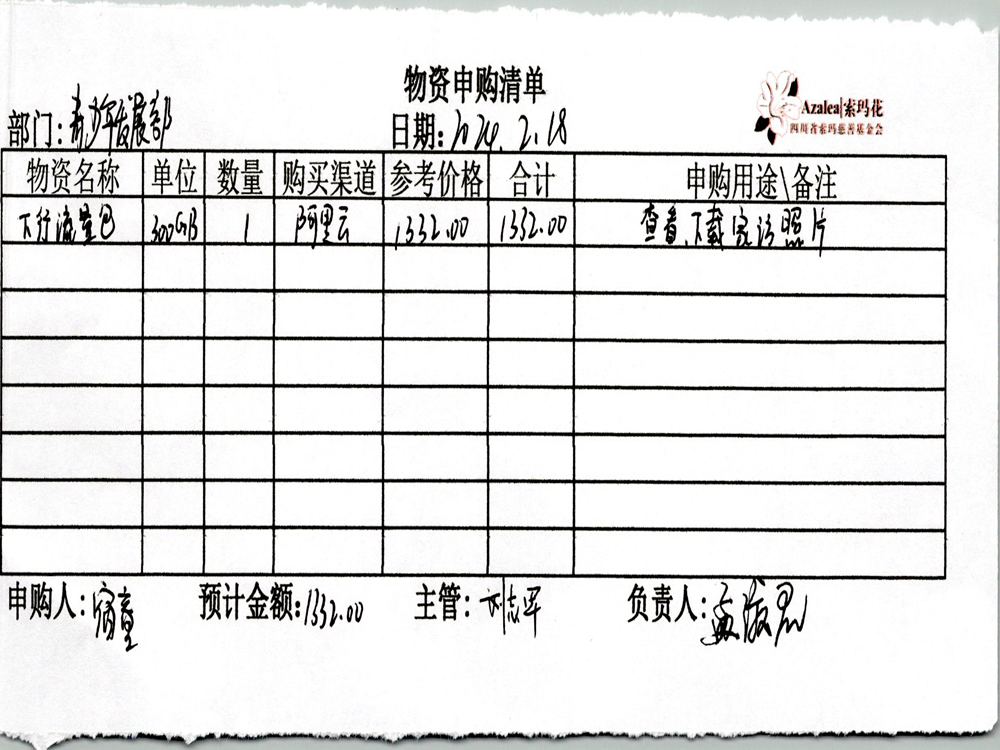 物资申购清单
Azalea|索玛花
四川省索玛慈善基金会
部门:青少年发展部 日期:2024.2.18
物资名称 单位 数量 购买渠道 参考价格 合计 申购用途\备注
下行流量包 300GB 1 阿里云 1332.00 1332.00 查看、下载家访照片
申购人: 预计金额:1332.00 主管:刘志军 负责人: